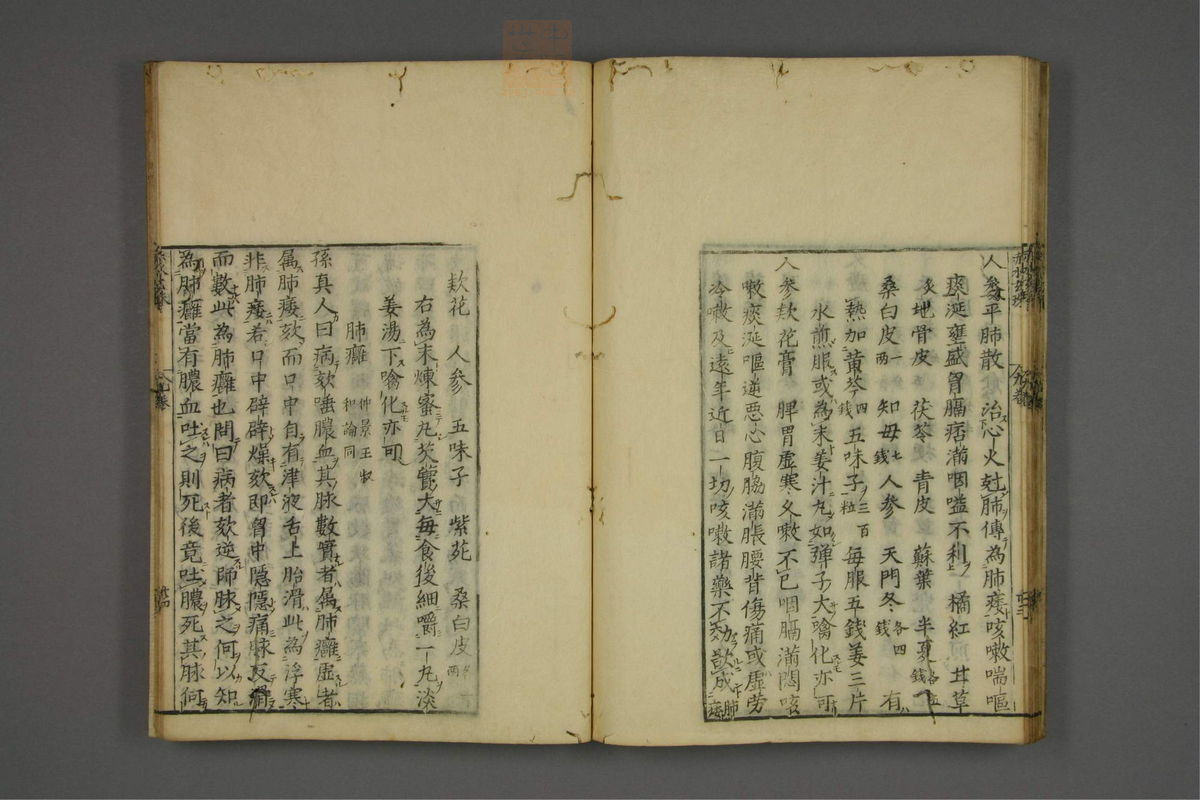 人參平肺散 治心火尅肺傳為肺痿咳嗽喘嘔
痰涎壅盛胷膈痞滿咽嗌不利 橘紅 甘草
炙地骨皮 茯苓 青皮 蘇葉 半夏各五錢
桑白皮一兩 知母七錢 人參 天門冬各四錢 有
熱加黄芩四錢 五味子三百粒 每服五錢姜三片
水煎服或為末姜汁丸如弾子大噙化亦可
人參款花膏 脾胃虚寒久嗽不已咽膈滿悶咳
嗽痰涎嘔逆惡心腹脇滿脹腰背傷痛或虚劳
冷嗽及遠年近日一切咳嗽諸藥不効欲成肺痿
款花 人參 五味子 紫苑 桑白皮
右為末煉蜜丸芡實大每食後細嚼一丸淡
姜湯下噙化亦可
肺癰 仲景王叔和論同
孫真人曰病欬唾膿血其脉數實者属肺癰虚者
属肺痿欬而口中自有津液舌上胎滑此為浮寒
非肺痿若口中辟辟燥欬即胷中隱隱痛脉反滑
而數此為肺癰也問曰病者欬逆師脉之何以知
為肺癰當有膿血吐之則死後竟吐膿死其脉何